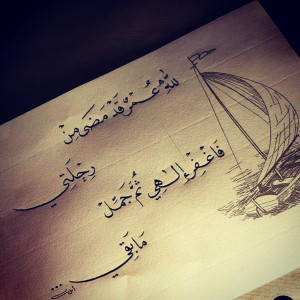 للهِ عُمْرٌ قَدْ مَضَى مِنْ
رِحْلَتِي
فَاغْفِرْ إِلَهِي ثُمَّ جَمِّلْ
مَا بَقِي